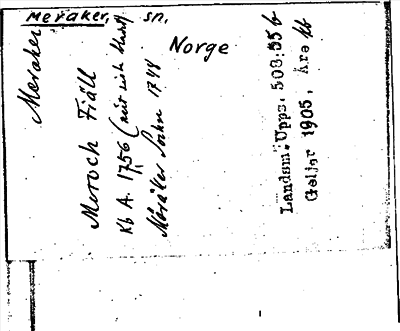 Meraker, sn.
Norge
Meraker
Meroch Fiäll
Kb A. 1756 (
Meråker Sochn 1748
Landsm. Upps. 508:55 b
Geijer 1905, Åre kb